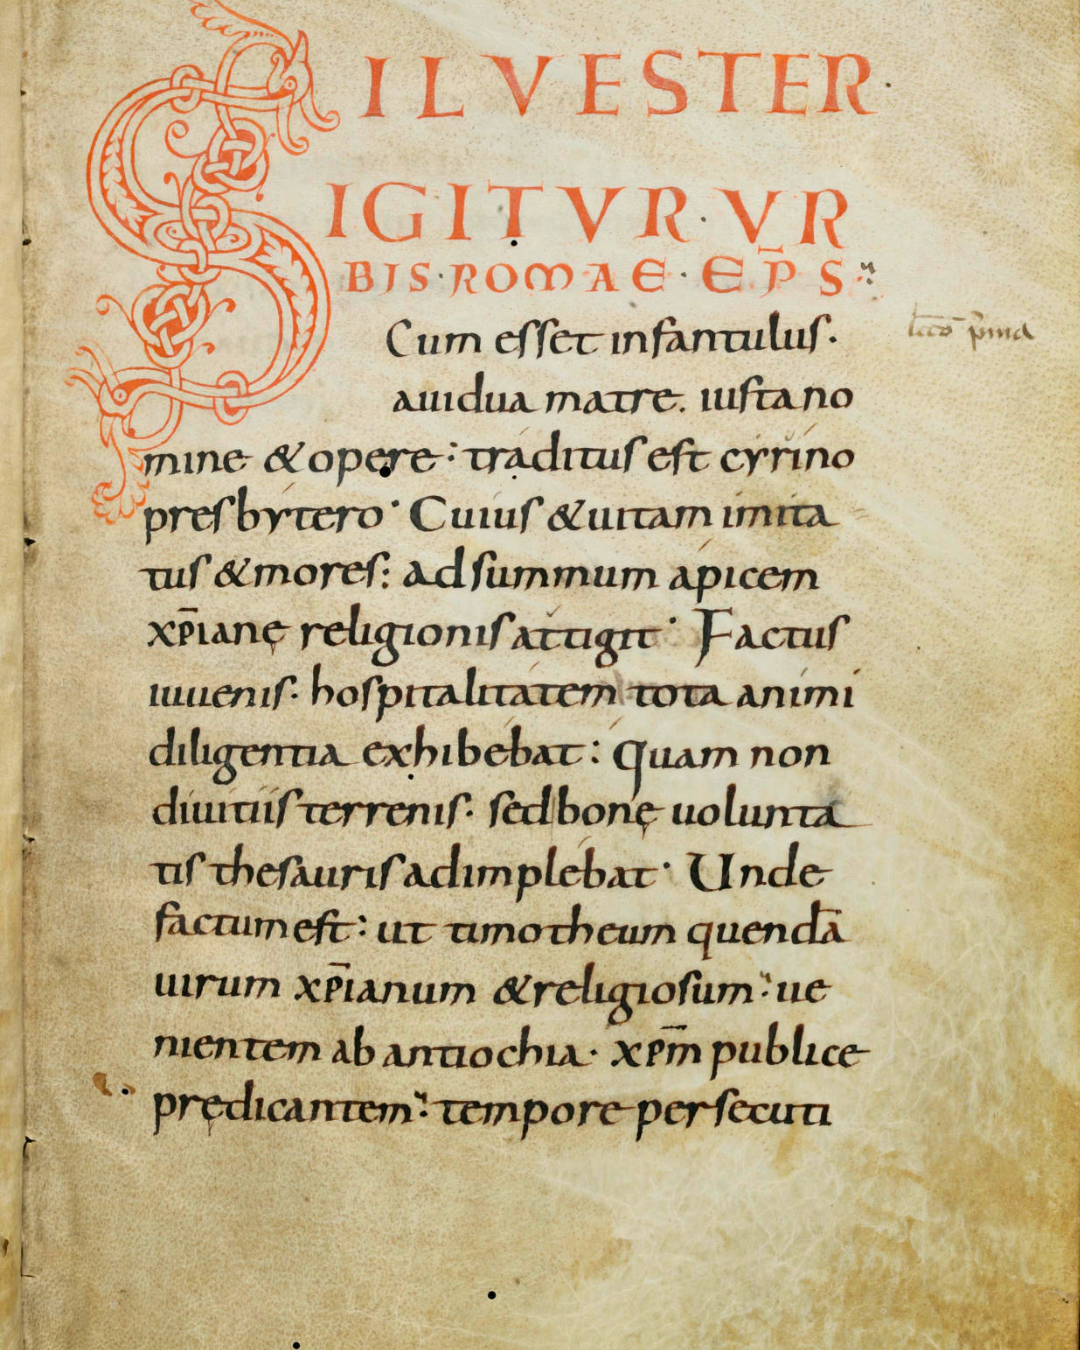 SILVESTER·
IGITVR·VR
BIS·ROMAE·EP̄S
Cum esset infantulus·
auidua matre. iusta no
mine & opere: traditus est cyrino
presbytero· Cuius & uitam imita
tus & mores: ad summum apicem
xp̄ianę religionis attigit· Factus
iuuenis· hospitalitatem tota animi
diligentia exhibebat: Quam non
diuitiis terrenis· sed bonę uolunta
tis thesauris adimplebat· Unde
factum est: ut timotheum quendā
uirum xp̄ianum & religiosum: ue
nientem ab antiochia· xp̄m publice
prędicantem: tempore persecuti